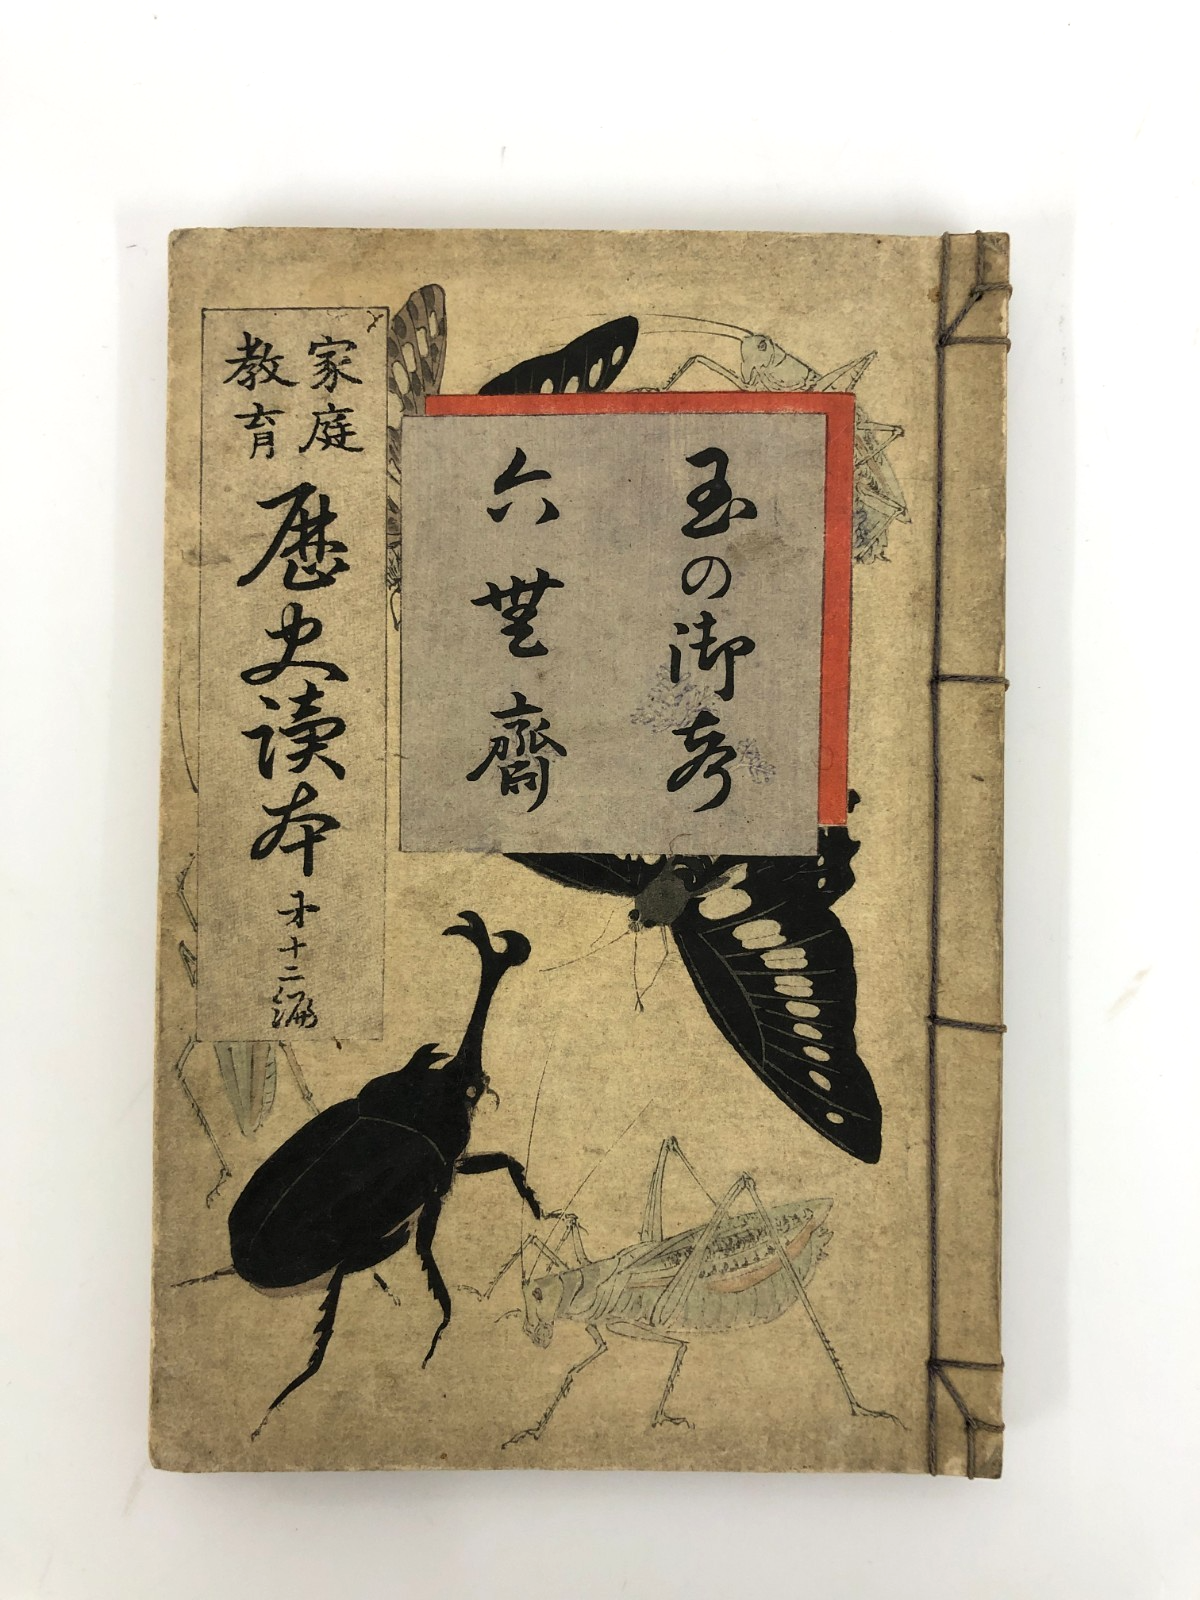 玉の御声
六無齋
家庭
教育
歴史讀本
第十二編